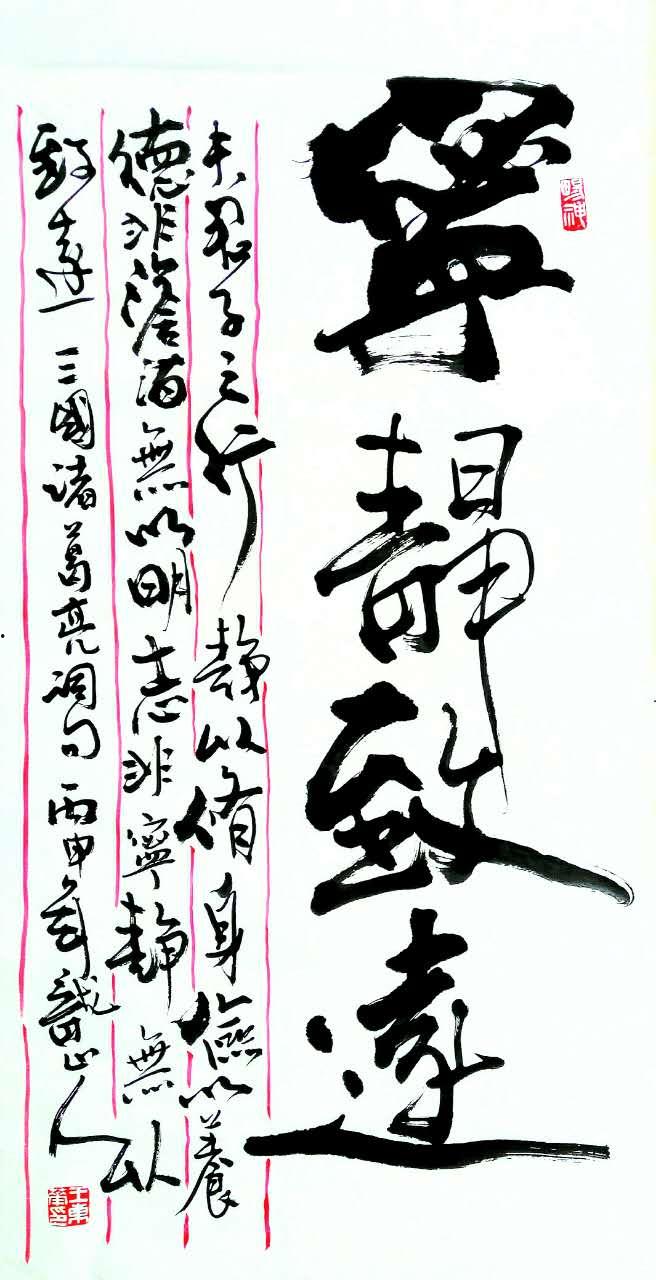 寧靜致遠
夫君子之行靜以脩身儉以養
德非澹泊無以明志非寧靜無以
致遠 三國諸葛亮詞句 丙申年 山人